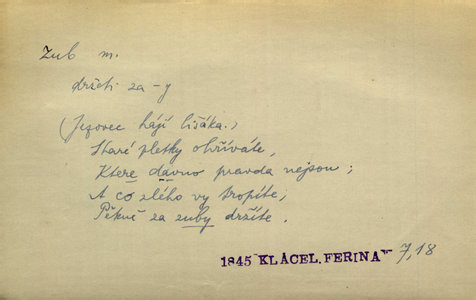 Zub m.
držeti za-y
(Jezovec hájí lišáka.)
Staré pletky ohříváte,
Které dávno pravda nejsou;
A co zlého vy tropíte,
Pěkně za zuby držíte.
1845 KLÁCEL. FERINA 7,18